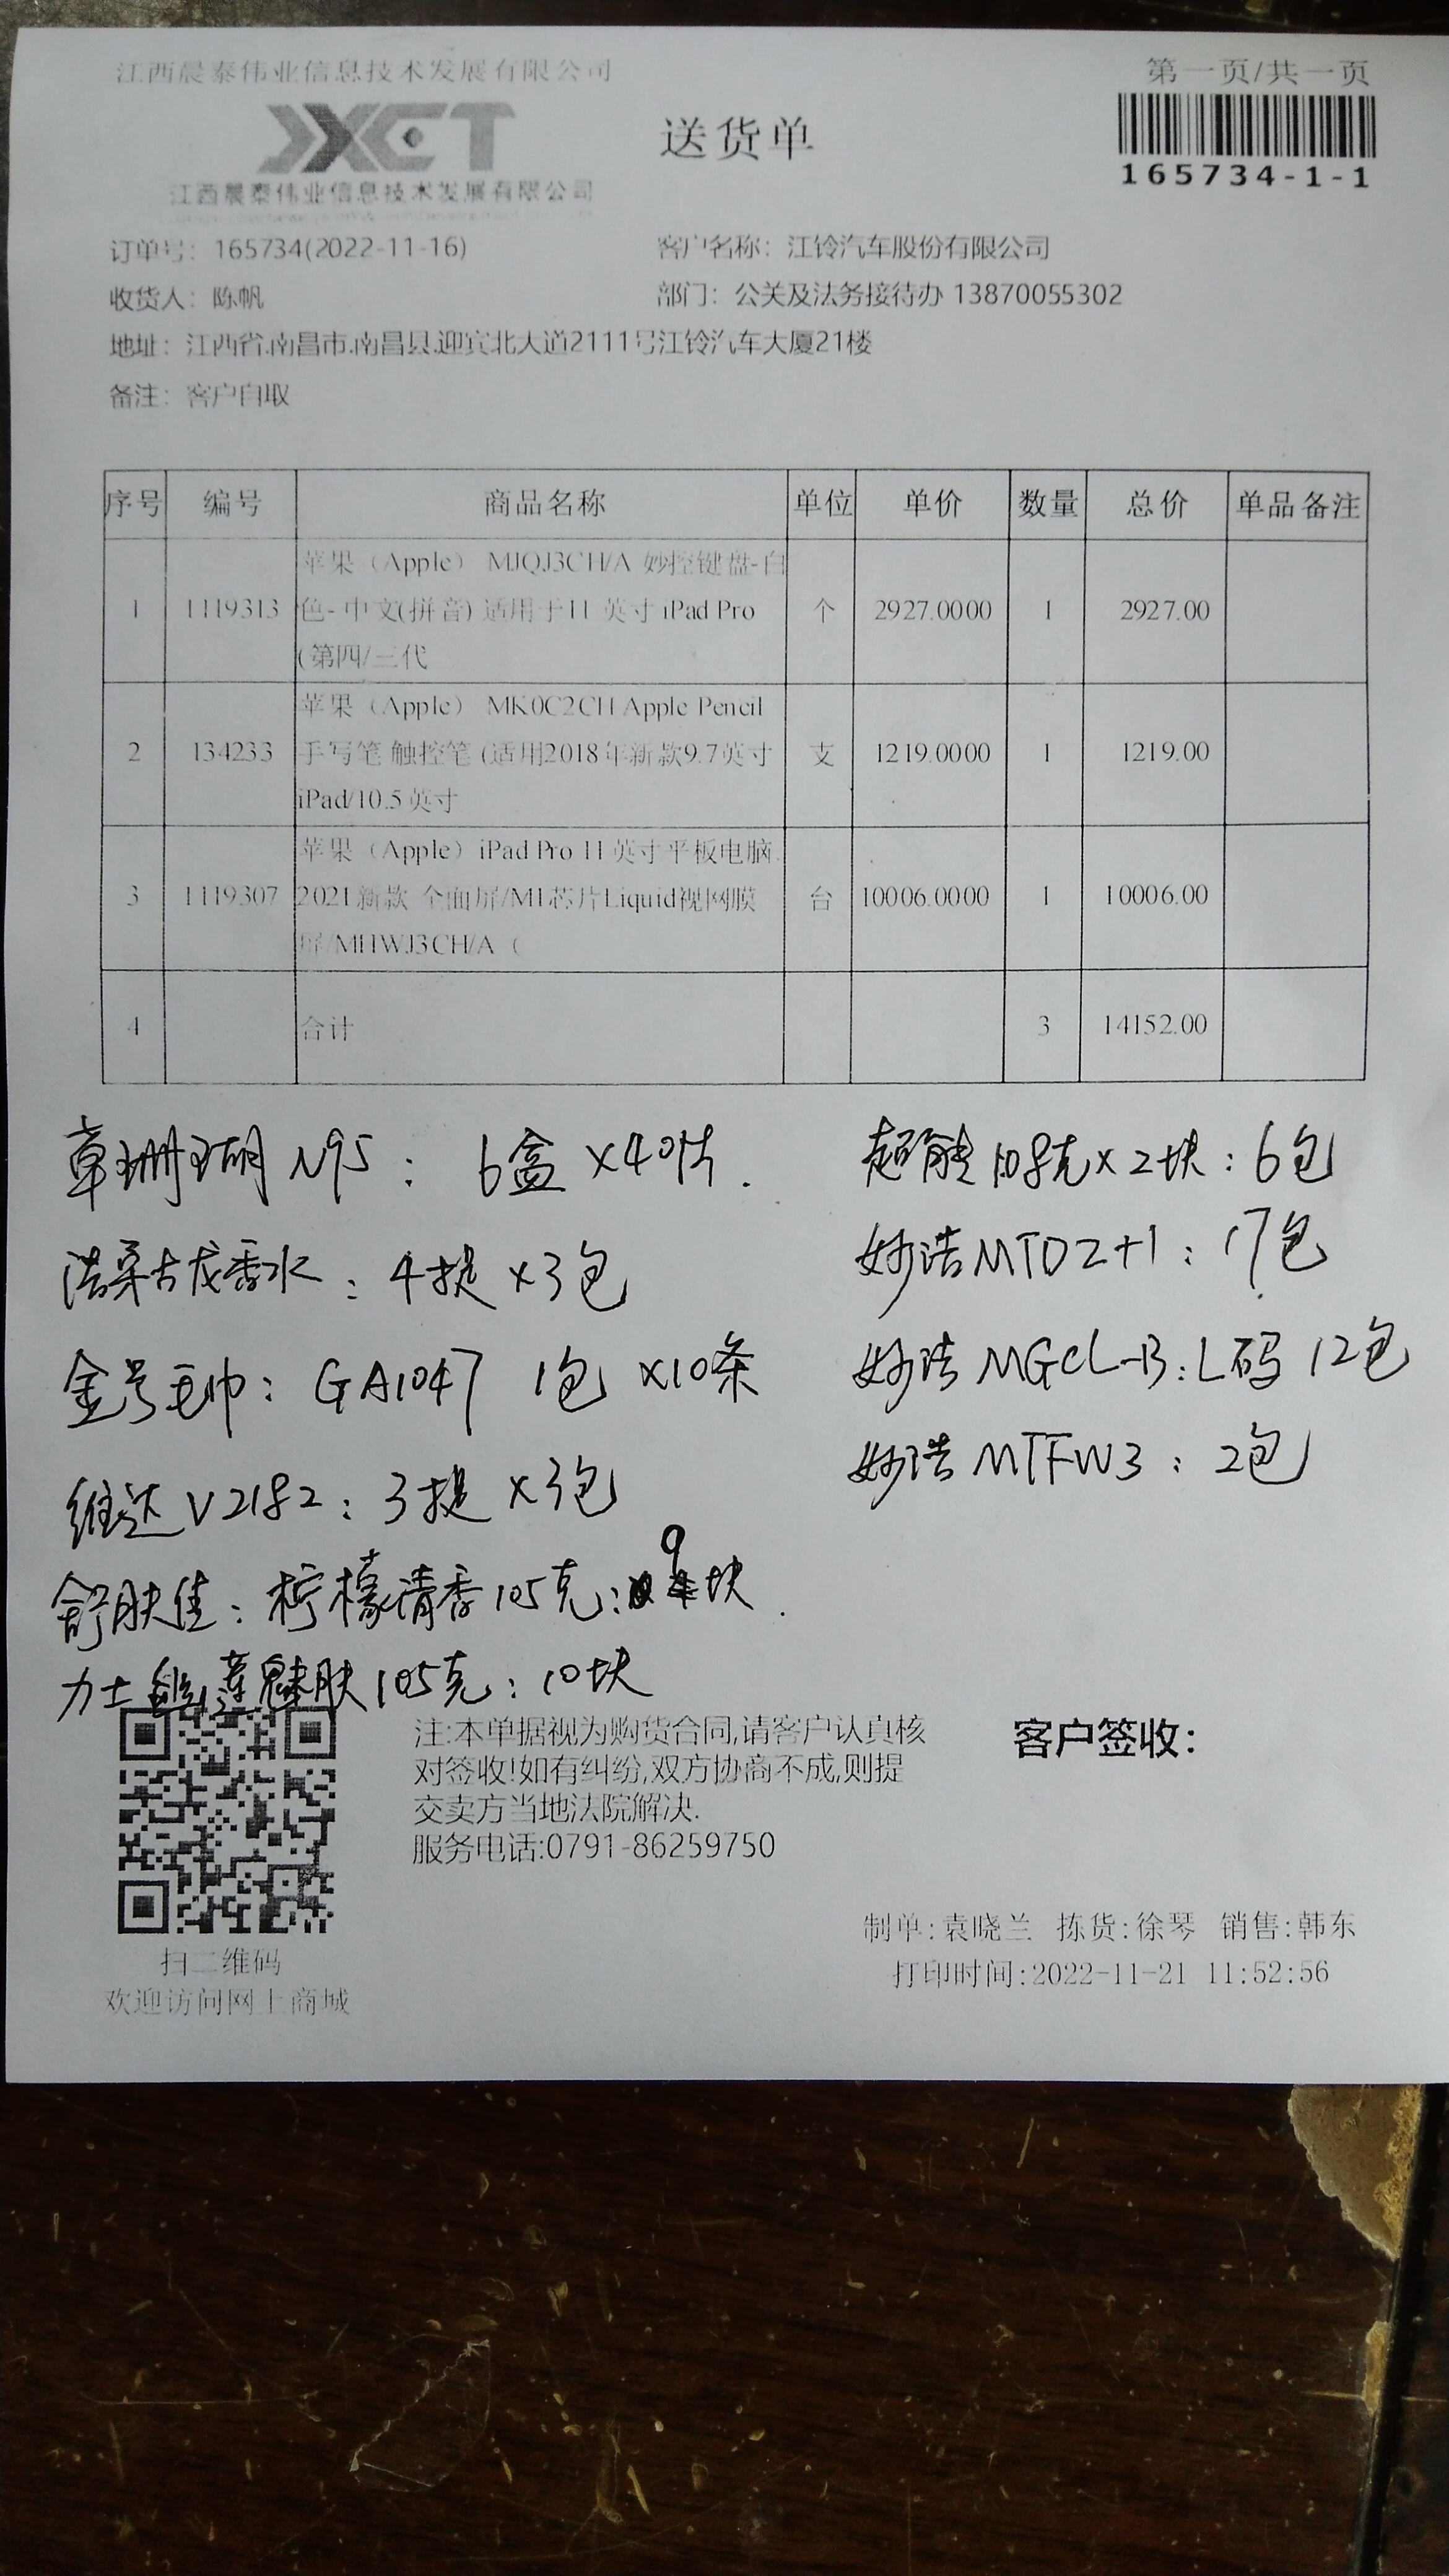 江西晨泰伟业信息技术发展有限公司
第一页/共一页
JXCT
送货单
165734-1-1
江西晨泰伟业信息技术发展有限公司
订单号：165734(2022-11-16)
客户名称：江铃汽车股份有限公司
收货人：陈帆
部门：公关及法务接待办 13870055302
地址：江西省.南昌市.南昌县.迎宾北大道2111号江铃汽车大厦21楼
备注：客户自取
序号 编号 商品名称 单位 单价 数量 总价 单品备注
苹果（Apple） MJQJ3CH/A 妙控键盘-白
1 1119313 色- 中文(拼音) 适用于11 英寸 iPad Pro 个 2927.0000 1 2927.00
(第四/三代
苹果（Apple） MK0C2CH Apple Pencil
2 134233 手写笔 触控笔 (适用2018年新款9.7英寸 支 1219.0000 1 1219.00
iPad/10.5英寸
苹果（Apple）iPad Pro 11英寸平板电脑
3 1119307 2021新款 全面屏/M1芯片Liquid视网膜 台 10006.0000 1 10006.00
屏/MHWJ3CH/A（
4 合计 3 14152.00
草珊瑚 N95： 6盒 ×40片.
超能108克×2块：6包
洁柔古龙香水：4提×3包
妙洁MTD2+1：17包
金号毛巾：GA1047 1包 ×10条
妙洁MGCL-B：L码 12包
维达V2182：3提×3包
妙洁MTFW3：2包
舒肤佳：柠檬清香105克：9块
力士 莲魅肤105克：10块
注:本单据视为购货合同,请客户认真核
对签收!如有纠纷,双方协商不成,则提
交卖方当地法院解决.
服务电话:0791-86259750
客户签收：
扫二维码
欢迎访问网上商城
制单:袁晓兰 拣货:徐琴 销售:韩东
打印时间:2022-11-21 11:52:56